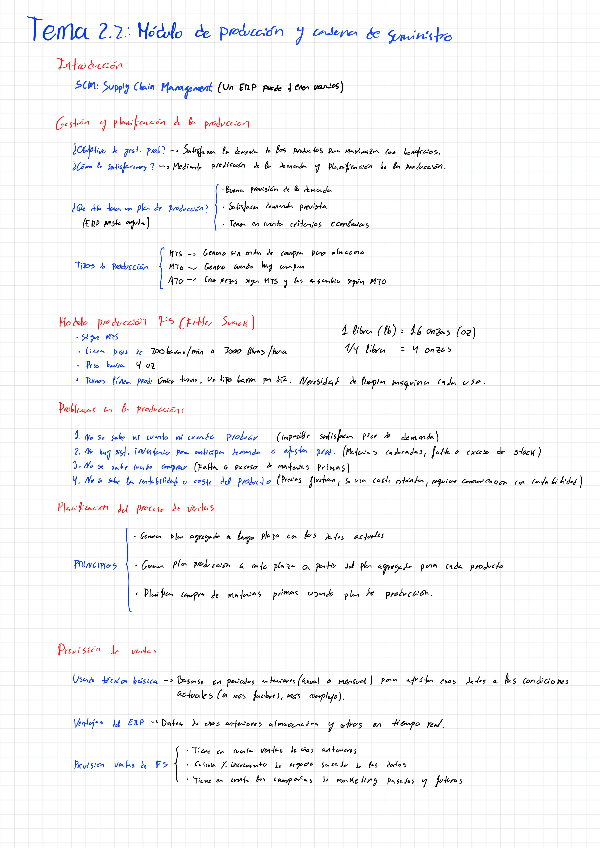 Tema 2.2: Módulo de producción y cadena de suministro
Introducción
SCM: Supply Chain Management (Un ERP puede tener varios)
Gestión y planificación de la producción
¿Objetivo de gest. prod? → Satisfacer la demanda de los productos para maximizar los beneficios.
¿Cómo lo satisfacemos? → Mediante predicción de la demanda y planificación de la producción.
¿Que debe tener un plan de producción?
(ERP nos ayuda)
· Buena previsión de la demanda
· Satisfacer demanda prevista
· Tener en cuenta criterios económicos
Tipos de Producción
MTS → Genero sin orden de compra para almacena
MTO → Genero cuando hay compra
ATO → Creo piezas según MTS y las ensamblo según MTO
Modelo producción FS (Fitter Snacks)
· Sigue MTS
· Línea prod de 200 barras/min o 3000 libras/hora
· Peso barra 4 oz
· Turnos línea prod: Único turno, un tipo barra por día. Necesidad de limpiar maquinaria cada uso.
1 libra (lb) = 16 onzas (oz)
1/4 libra = 4 onzas
Problemas en la producción:
1. No se sabe ni cuanto ni cuando producir (imposible satisfacer pico de demanda)
2. No hay sist. inventario para anticipar demanda o ajustar prod. (Materias caducadas, falta o exceso de stock)
3. No se sabe cuanto comprar (Falta o exceso de materias primas)
4. No se sabe la rentabilidad o coste del producto (Precios fluctuan, se usa coste estandar, requiere comunicación con contabilidad)
Planificación del proceso de ventas
PRINCIPIOS
· Generar plan agregado a largo plazo con los datos actuales
· Generar plan producción a corto plazo a partir del plan agregado para cada producto
· Planificar compra de materias primas usando plan de producción.
Previsión de ventas
Usando técnica básica → Basarse en periodos anteriores (anual o mensual) para ajustar esos datos a las condiciones
actuales (a más factores, más complejo).
Ventajas del ERP → Datos de años anteriores almacenados y otros en tiempo real.
Previsión ventas de FS
· Tiene en cuenta ventas de años anteriores
· Calcula % incremento de negocio sacado de los datos
· Tiene en cuenta las campañas de marketing pasadas y futuras